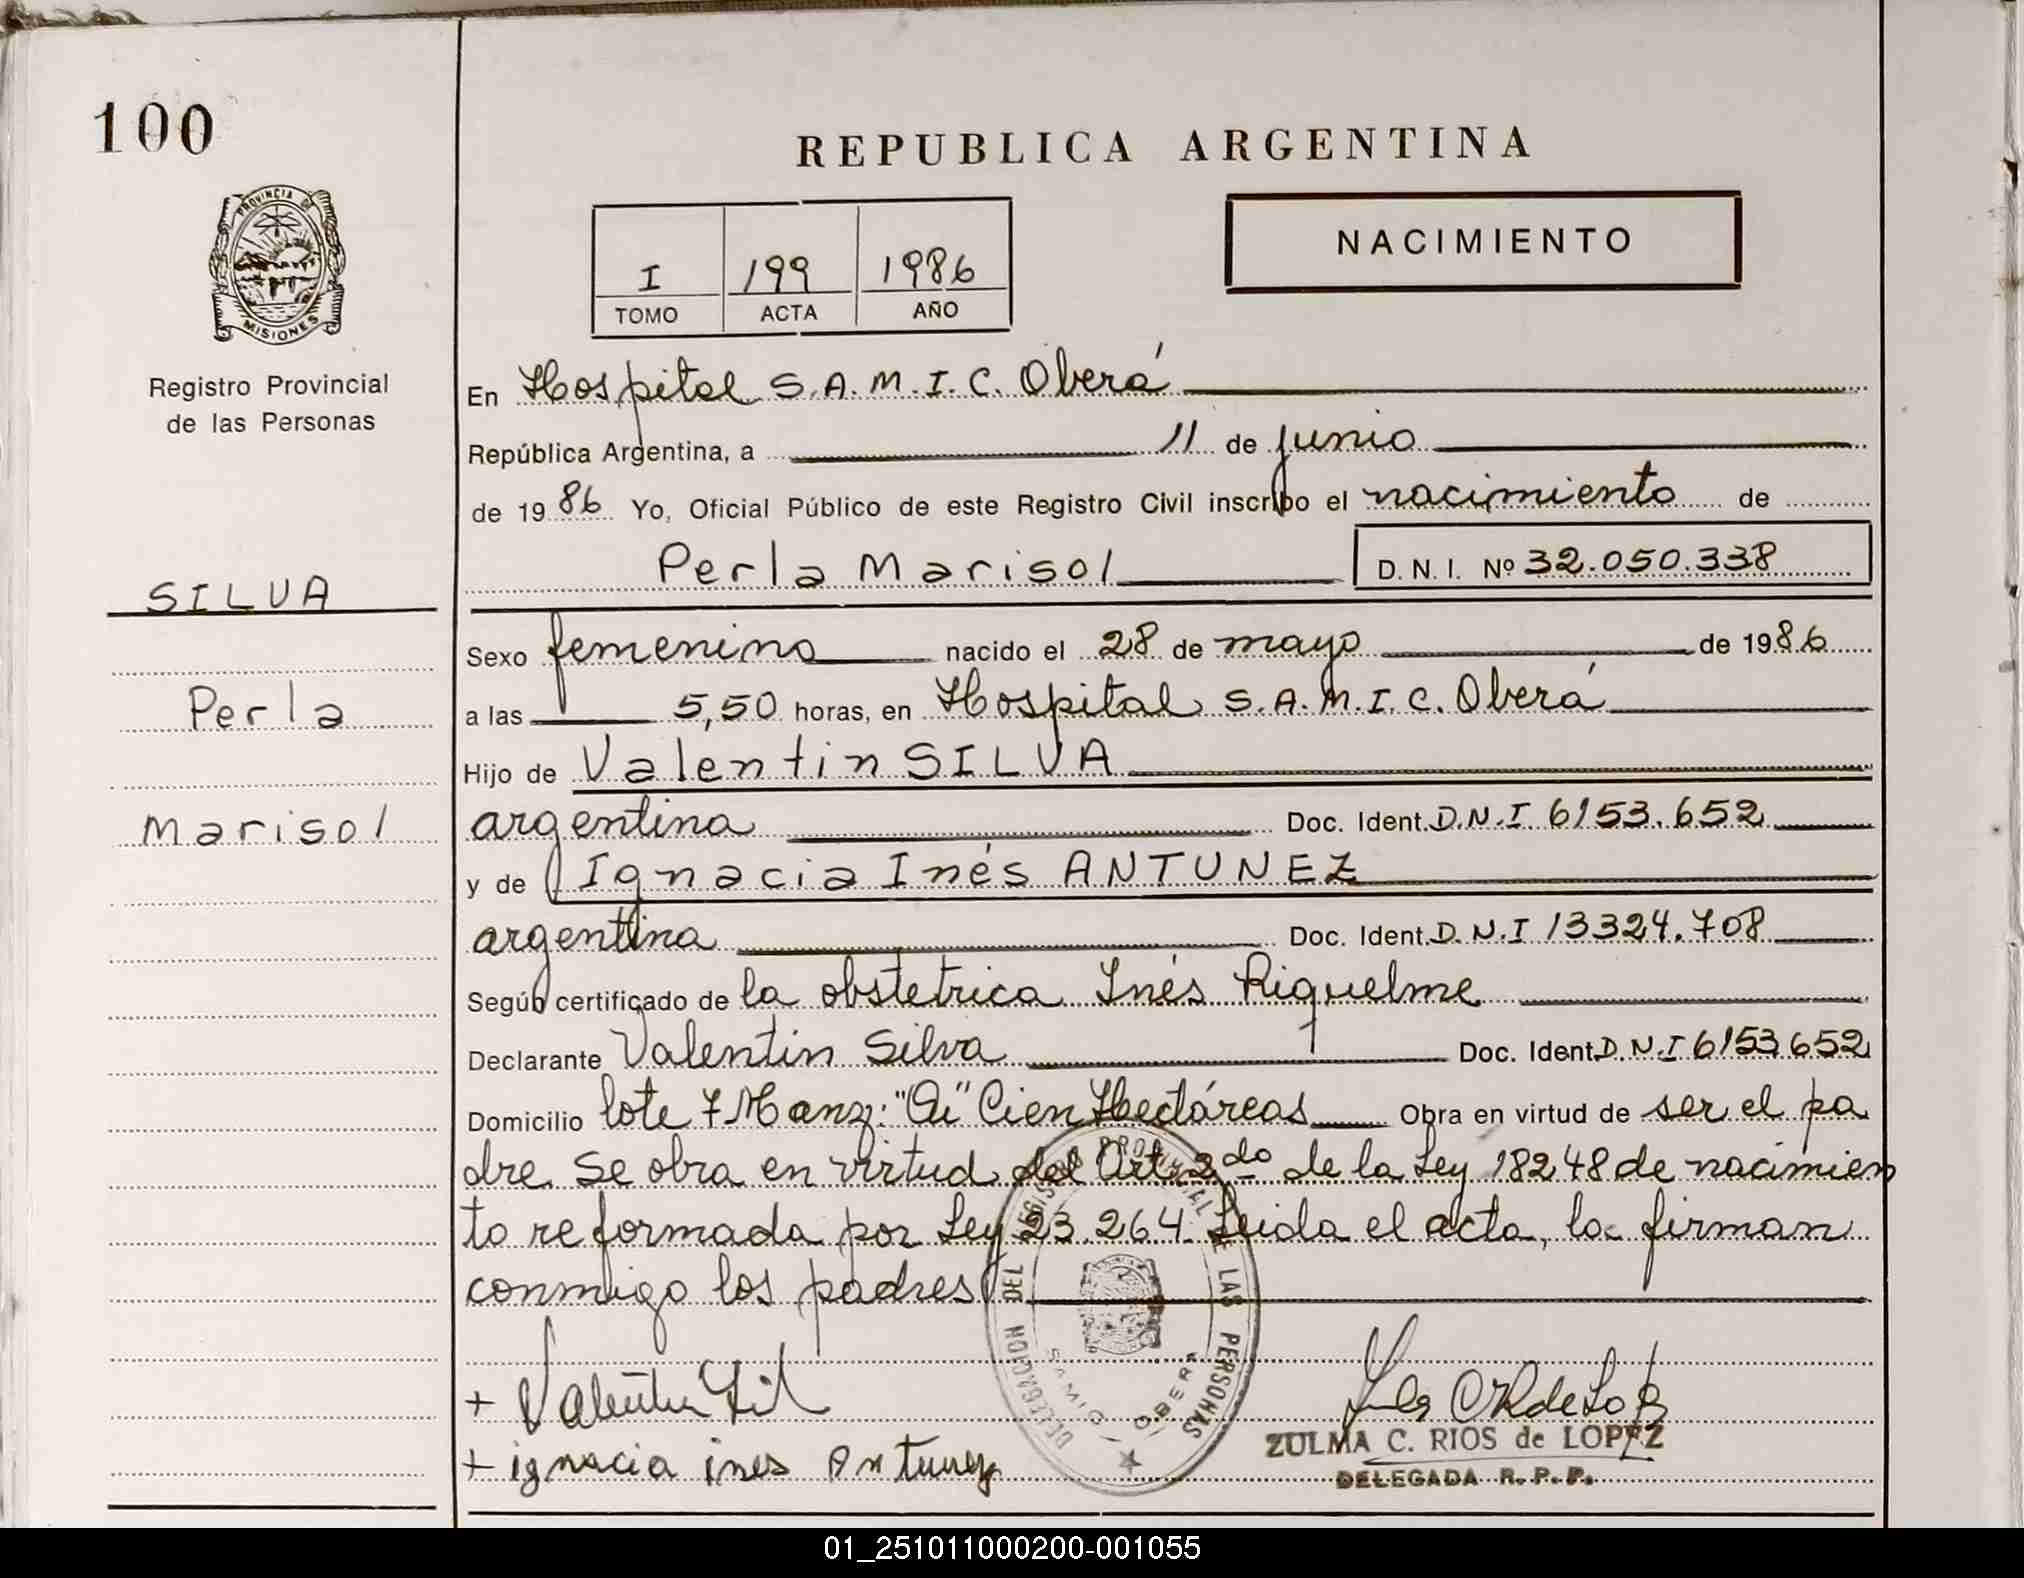 100
REPUBLICA ARGENTINA
PROVINCIA DE
MISIONES
I 199 1986
TOMO ACTA AÑO
NACIMIENTO
Registro Provincial
de las Personas
SILVA
Perla
Marisol
En Hospital S.A.M.I.C. Oberá
República Argentina, a 11 de junio
de 1986 Yo, Oficial Público de este Registro Civil inscribo el nacimiento de
Perla Marisol D.N.I. Nº 32.050.338
Sexo femenino nacido el 28 de mayo de 1986
a las 5,50 horas, en Hospital S.A.M.I.C. Oberá
Hijo de Valentin SILVA
argentina Doc. Ident. D.N.I 6153.652
y de Ignacia Inés ANTUNEZ
argentina Doc. Ident. D.N.I 13324.708
Según certificado de la obstetrica Inés Riquelme
Declarante Valentin Silva Doc. Ident. D.N.I 6153652
Domicilio lote 7 Manz: Cien Hectáreas Obra en virtud de ser el pa
dre. Se obra en virtud del Art. 2do de la Ley 18248 de nacimien
to reformada por Ley 23.264. Leida el acta, la firman
conmigo los padres
DELEGACION DEL REGISTRO PROVINCIAL DE LAS PERSONAS
SAMIC OBERA
+ Valentin Sil
+ ignacia ines Antunez
ZULMA C. RIOS de LOPEZ
DELEGADA R. P. P.
01_251011000200-001055